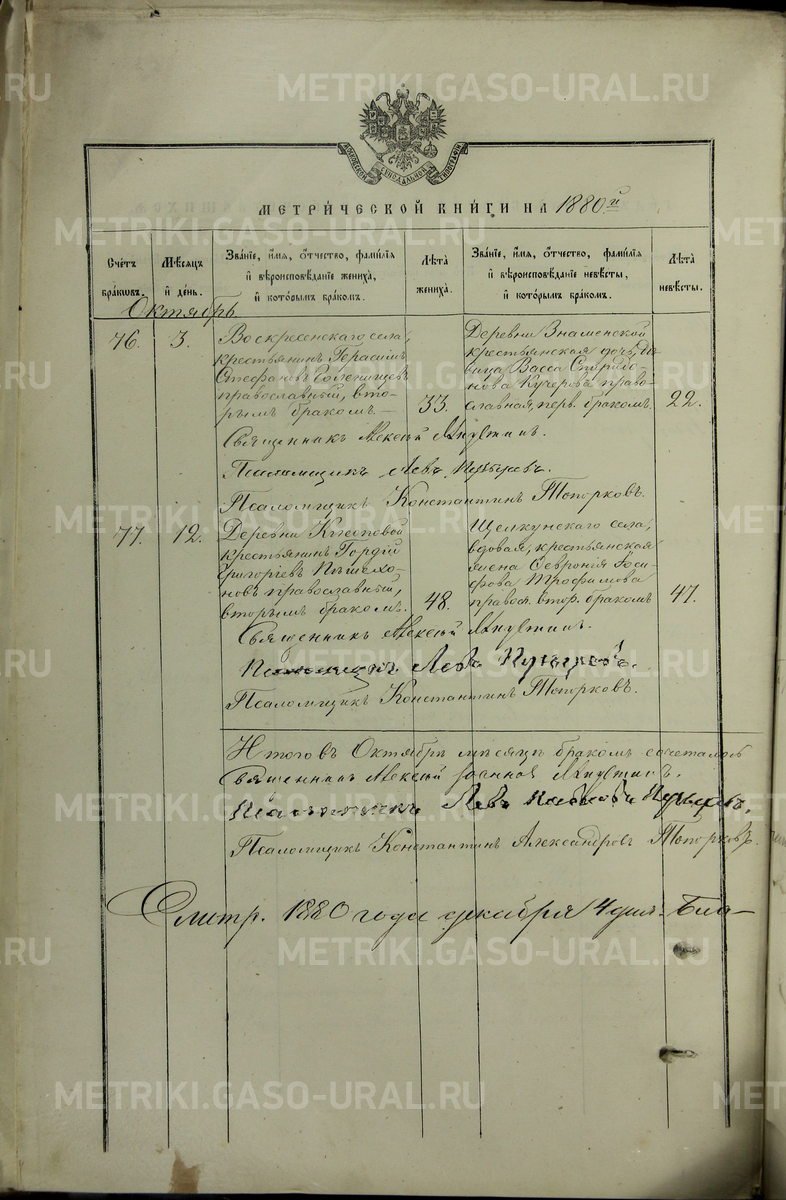 METRIKI.GASO-URAL.RU
МОСКОВСКОЙ СѴНОДАЛЬНОЙ ТИПОГРАФІИ
МЕТРИ́ЧЕСКОЙ КНИ́ГИ НА 1880й
Сче́тъ бра́ковъ.
Мѣ́сяцъ и҆ де́нь.
Зва́нїе, и҆́мя, ѻ҆́тчество, фами́лїя и҆ вѣроисповѣ́данїе жениха̀, и҆ кото́рымъ бра́комъ.
Лѣ́та жениха̀.
Зва́нїе, и҆́мя, ѻ҆́тчество, фами́лїя и҆ вѣроисповѣ́данїе невѣ́сты, и҆ кото́рымъ бра́комъ.
Лѣ́та невѣ́сты.
Октябрь
76. 3.
Воскресенскаго села,
крестьянинъ Герасимъ
Стефановъ Голенищевъ
православный, вто-
рымъ бракомъ
33.
Деревни Знаменской
крестьянская дочь, дѣ-
вица Васса Спиридо-
нова Кучерова право-
славная, перв. бракомъ.
22.
Священникъ Алексѣй
Псаломщикъ Левъ
Псаломщикъ Константинъ Топорковъ.
77. 12.
Деревни
крестьянинъ Гордій
Григорьевъ Пѣшехо-
новъ православный,
вторымъ бракомъ.
48.
Щелкунскаго села,
вдовая, крестьянская
жена Февронія Іоси-
фова Трофимова
правосл. втор. бракомъ
47.
Священникъ Алексѣй
Псаломщикъ Левъ
Псаломщикъ Константинъ Топорковъ.
Итого въ Октябрѣ мѣсяцѣ бракомъ сочеталось
Священникъ Алексѣй
Псаломщикъ Левъ
Псаломщикъ Константинъ Александровъ Топорковъ.
Смотр. 1880 года декабря 4 дня. Бла-